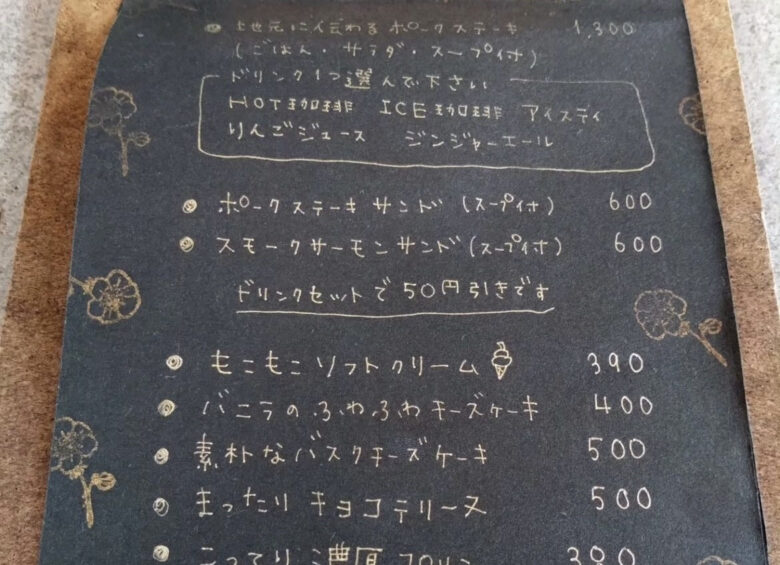 地元に伝わるポークステーキ 1,300
(ごはん・サラダ・スープ付)
ドリンク1つ選んで下さい
HOT珈琲 ICE珈琲 アイスティ
りんごジュース ジンジャーエール
ポークステーキサンド(スープ付) 600
スモークサーモンサンド(スープ付) 600
ドリンクセットで50円引きです
もこもこソフトクリーム 390
バニラのふわふわチーズケーキ 400
素朴なバスクチーズケーキ 500
まったりキョコテリーヌ 500
こってり濃厚プリン 380